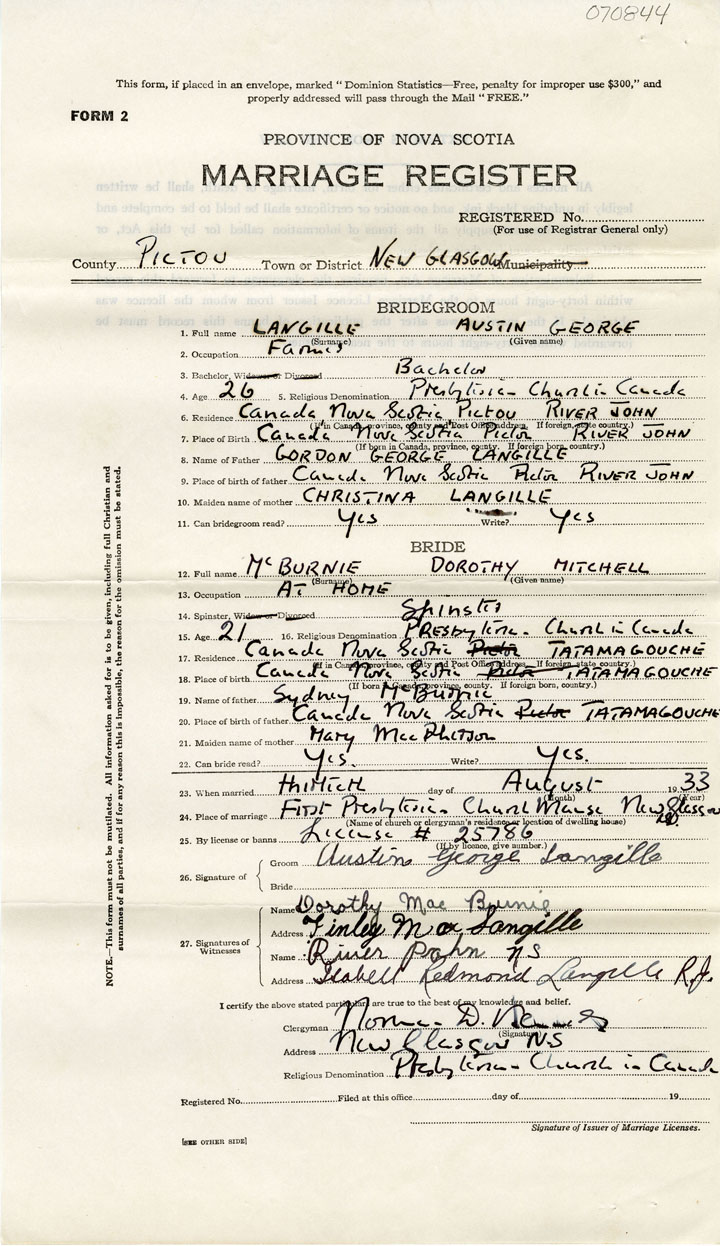 070844
This form, if placed in an envelope, marked "Dominion Statistics—Free, penalty for improper use $300," and
properly addressed will pass through the Mail "FREE."
FORM 2
PROVINCE OF NOVA SCOTIA
MARRIAGE REGISTER
REGISTERED No.
(For use of Registrar General only)
County PICTOU Town or District NEW GLASGOW Municipality
BRIDEGROOM
1. Full name LANGILLE AUSTIN GEORGE
(Surname) (Given name)
2. Occupation Farmer
3. Bachelor, Widower or Divorced Bachelor
4. Age 26 5. Religious Denomination Presbyterian Church in Canada
6. Residence Canada Nova Scotia Pictou RIVER JOHN
(If in Canada, province, county and Post Office address. If foreign, state country.)
7. Place of Birth Canada Nova Scotia Pictou RIVER JOHN
(If born in Canada, province, county. If foreign born, country.)
8. Name of Father GORDON GEORGE LANGILLE
9. Place of birth of father Canada Nova Scotia Pictou RIVER JOHN
10. Maiden name of mother CHRISTINA LANGILLE
11. Can bridegroom read? Yes Write? Yes
BRIDE
12. Full name McBURNIE DOROTHY MITCHELL
(Surname) (Given name)
13. Occupation AT HOME
14. Spinster, Widow or Divorced Spinster
15. Age 21 16. Religious Denomination PRESbyterian Church in Canada
17. Residence Canada Nova Scotia Pictou TATAMAGOUCHE
(If in Canada, province, county and Post Office address. If foreign state country.)
18. Place of birth Canada Nova Scotia Pictou TATAMAGOUCHE
(If born in Canada, province, county. If foreign born, country.)
19. Name of father Sydney McBurnie
20. Place of birth of father Canada Nova Scotia Pictou TATAMAGOUCHE
21. Maiden name of mother Mary MacPherson
22. Can bride read? Yes. Write? Yes.
23. When married thirtieth day of August 1933
(Month) (Year)
24. Place of marriage First Presbyterian Church Manse New Glasgow
(Name of church or clergyman's residence or location of dwelling house)
25. By license or banns License # 25786
(If by licence, give number.)
26. Signature of
Groom Austin George Langille
Bride
27. Signatures of Witnesses
Name Dorothy Mac Burnie
Address Finley Mac Langille
Name River John NS
Address Isabell Redmond Langille R.J.
I certify the above stated particulars are true to the best of my knowledge and belief.
Clergyman Norman D.
(Signature)
Address New Glasgow N.S
Religious Denomination Presbyterian Church in Canada
Registered No. Filed at this office day of 19
Signature of Issuer of Marriage Licenses.
[SEE OTHER SIDE]
NOTE.—This form must not be mutilated. All information asked for is to be given, including full Christian and
surnames of all parties, and if for any reason this is impossible, the reason for the omission must be stated.